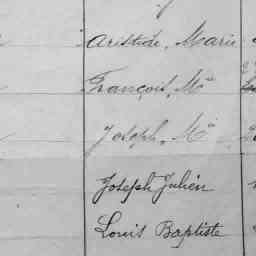 Aristide, Marie
François, Mⁱᵉ
Joseph, Mⁱᵉ
Joseph Julien
Louis Baptiste